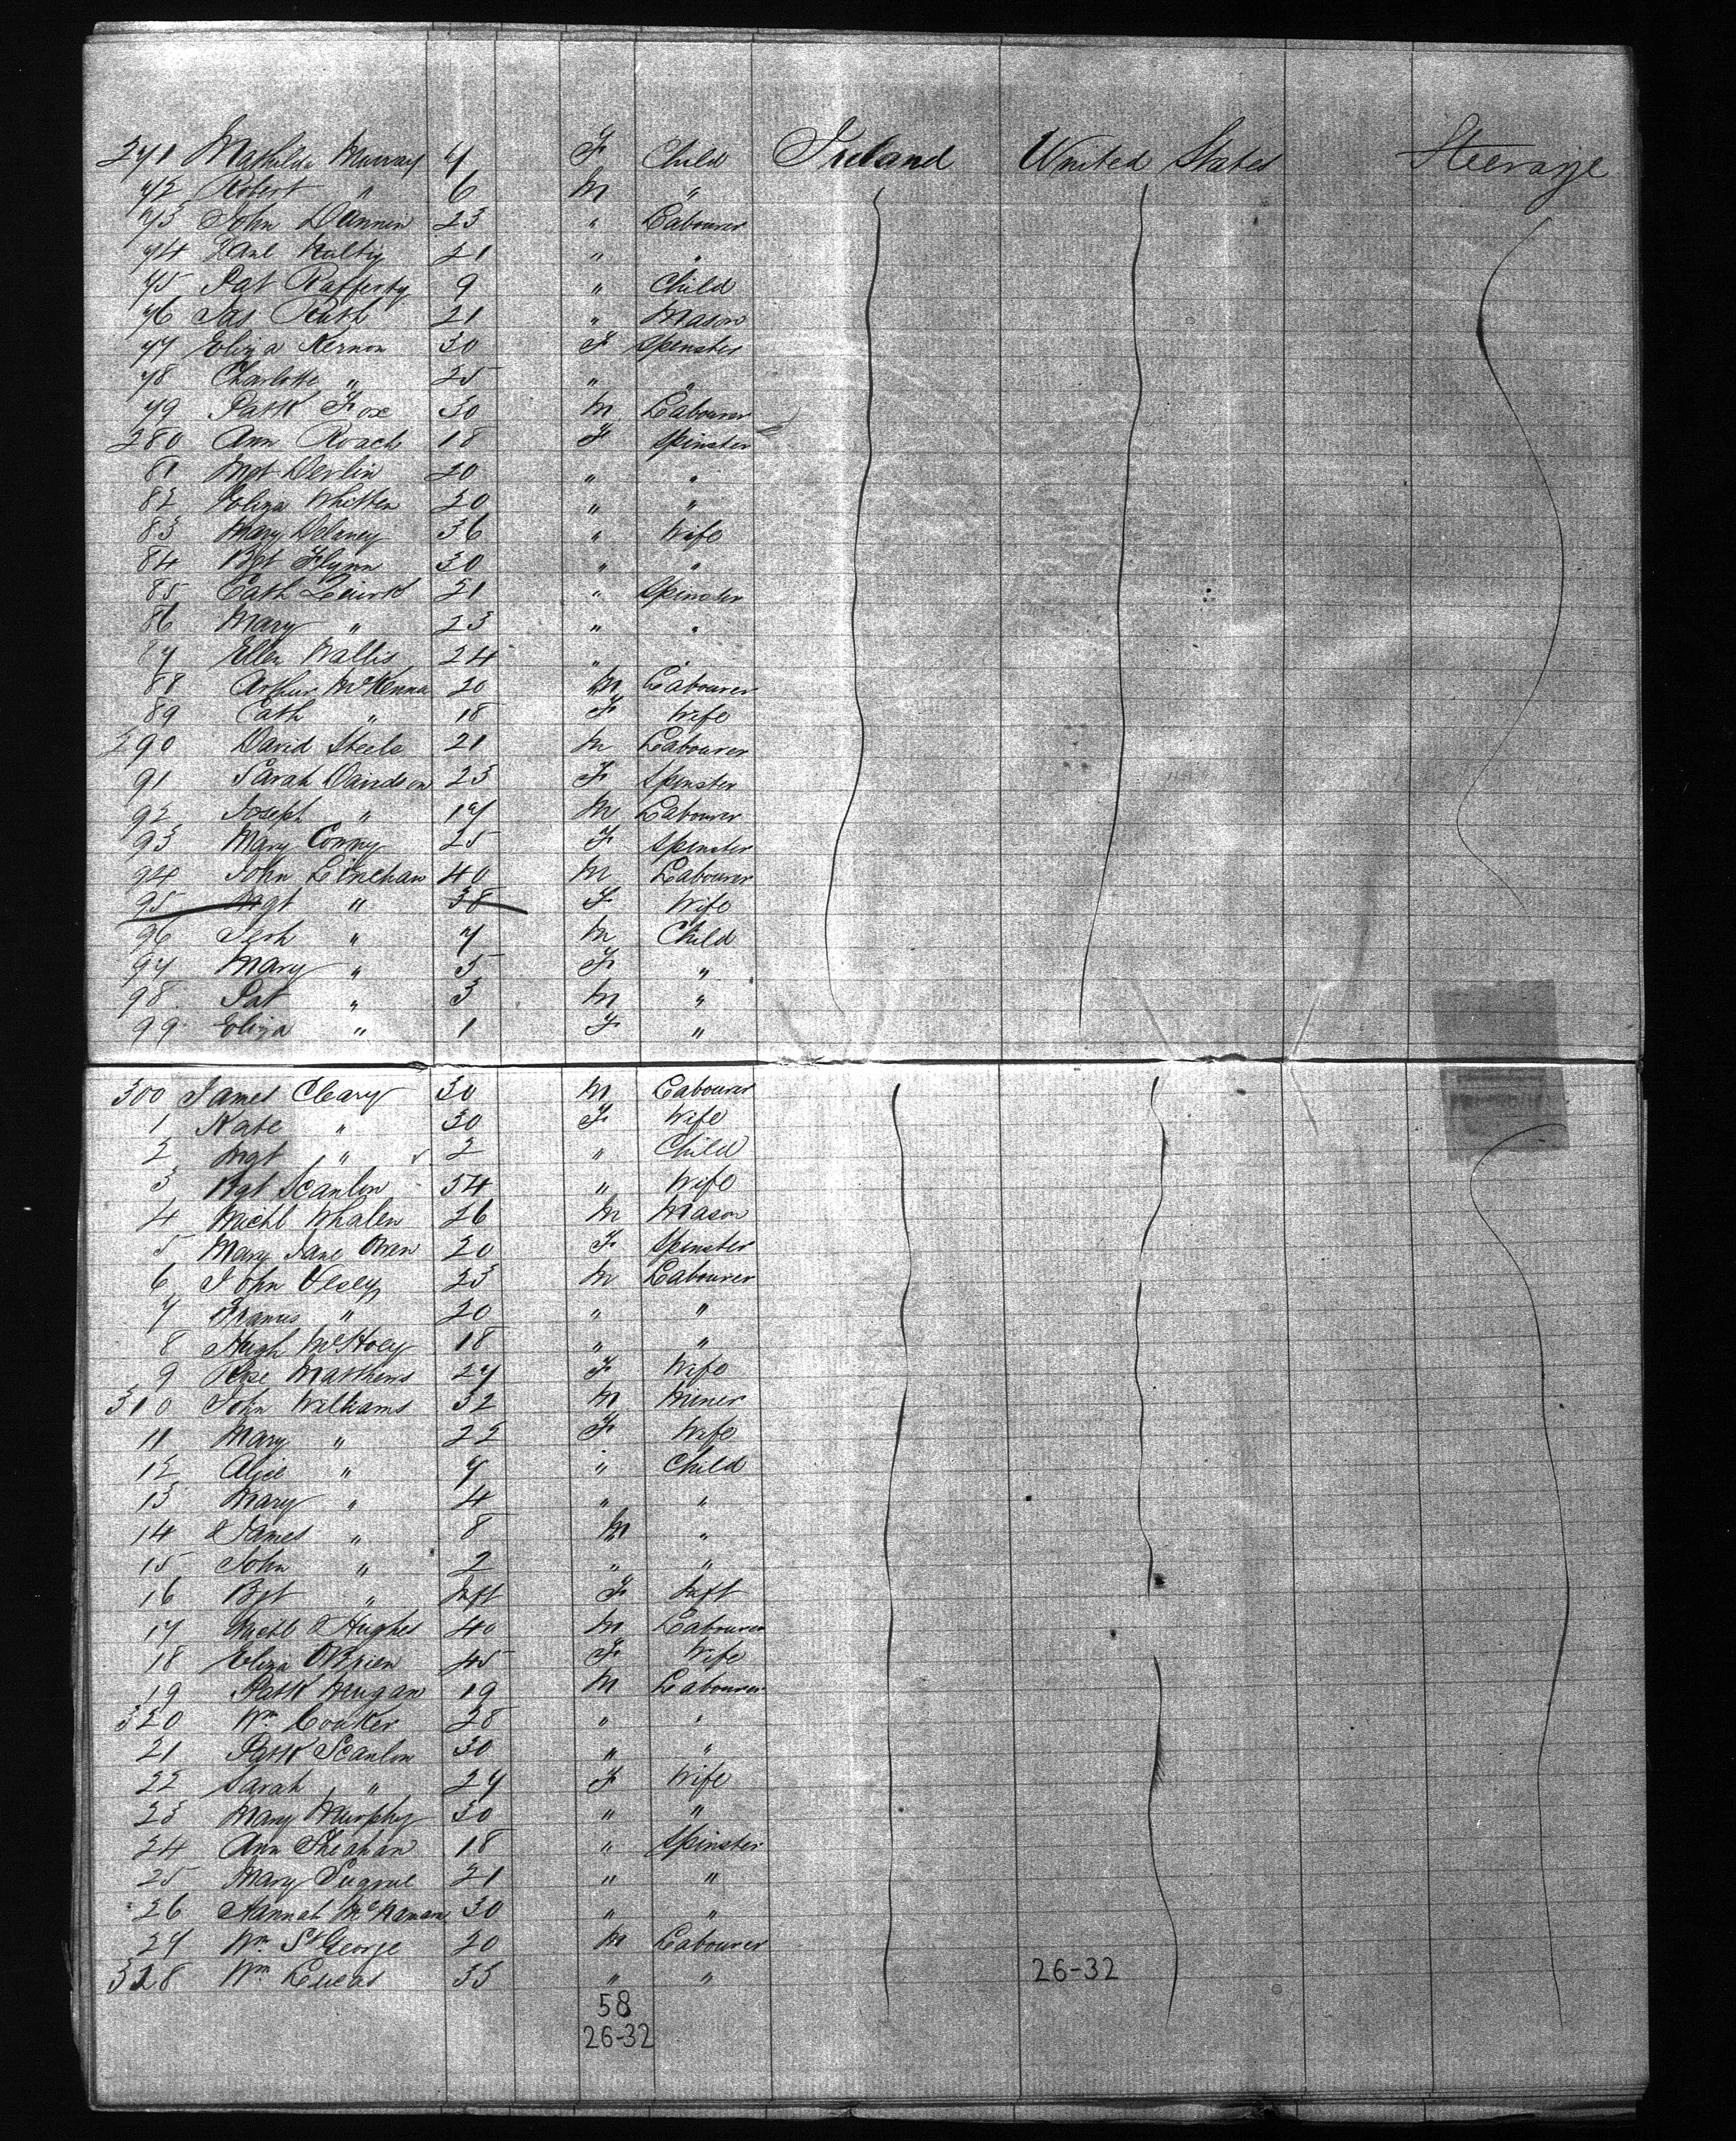 271 Mathilda Murray 7 F Child Ireland United States Steerage
72 Robert " 6 M "
73 John Dannen 23 " Labourer
74 21 " "
75 Pat Rafferty 9 " Child
76 Jas Ruth 21 " Mason
77 Eliza Kernon 30 F Spinster
78 Charlotte " 25 " "
79 Patk Fox 30 M Labourer
280 Ann Roach 18 F Spinster
81 Mgt Devlin 20 " "
82 Eliza Whitten 20 " "
83 Mary Delaney 36 " Wife
84 Bgt Flynn 30 " "
85 Cath Quirk 21 " Spinster
86 Mary " 23 " "
87 Ellen Wallis 24 " "
88 Arthur McKenna 20 M Labourer
89 Cath " 18 F Wife
290 David Steele 21 M Labourer
91 Sarah Davidson 23 F Spinster
92 Joseph " 17 M Labourer
93 Mary Conny 25 F Spinster
94 John Linehan 40 M Labourer
95 Mgt " 38 F Wife
96 " 7 M Child
97 Mary " 5 F "
98 Pat " 3 M "
99 Eliza " 1 F "
300 James Cleary 30 M Labourer
1 Kate " 30 F Wife
2 Mgt " 2 " Child
3 Bgt Scanlon 34 " Wife
4 Michl Whalen 26 M Mason
5 Mary Jane Oren 20 F Spinster
6 John Vesey 23 M Labourer
7 Francis " 20 " "
8 Hugh McHoey 18 " "
9 Rose Matthews 27 F Wife
310 John Williams 32 M Miner
11 Mary " 22 F Wife
12 Alice " 7 " Child
13 Mary " 4 " "
14 James " 8 M "
15 John " 2 " "
16 Bgt " Inft F Inft
17 Michl Hughes 40 M Labourer
18 Eliza OBrien 45 F Wife
19 Patk Meugan 19 M Labourer
320 Wm Coaker 28 " "
21 Patk Scanlon 30 " "
22 Sarah " 27 F Wife
23 Mary Murphy 30 " "
24 Ann Sheahan 18 " Spinster
25 Mary Sugrue 21 " "
26 Hannah McNamara 30 " "
27 Wm St George 20 M Labourer
328 Wm Lucas 33 " " 26-32
58
26-32